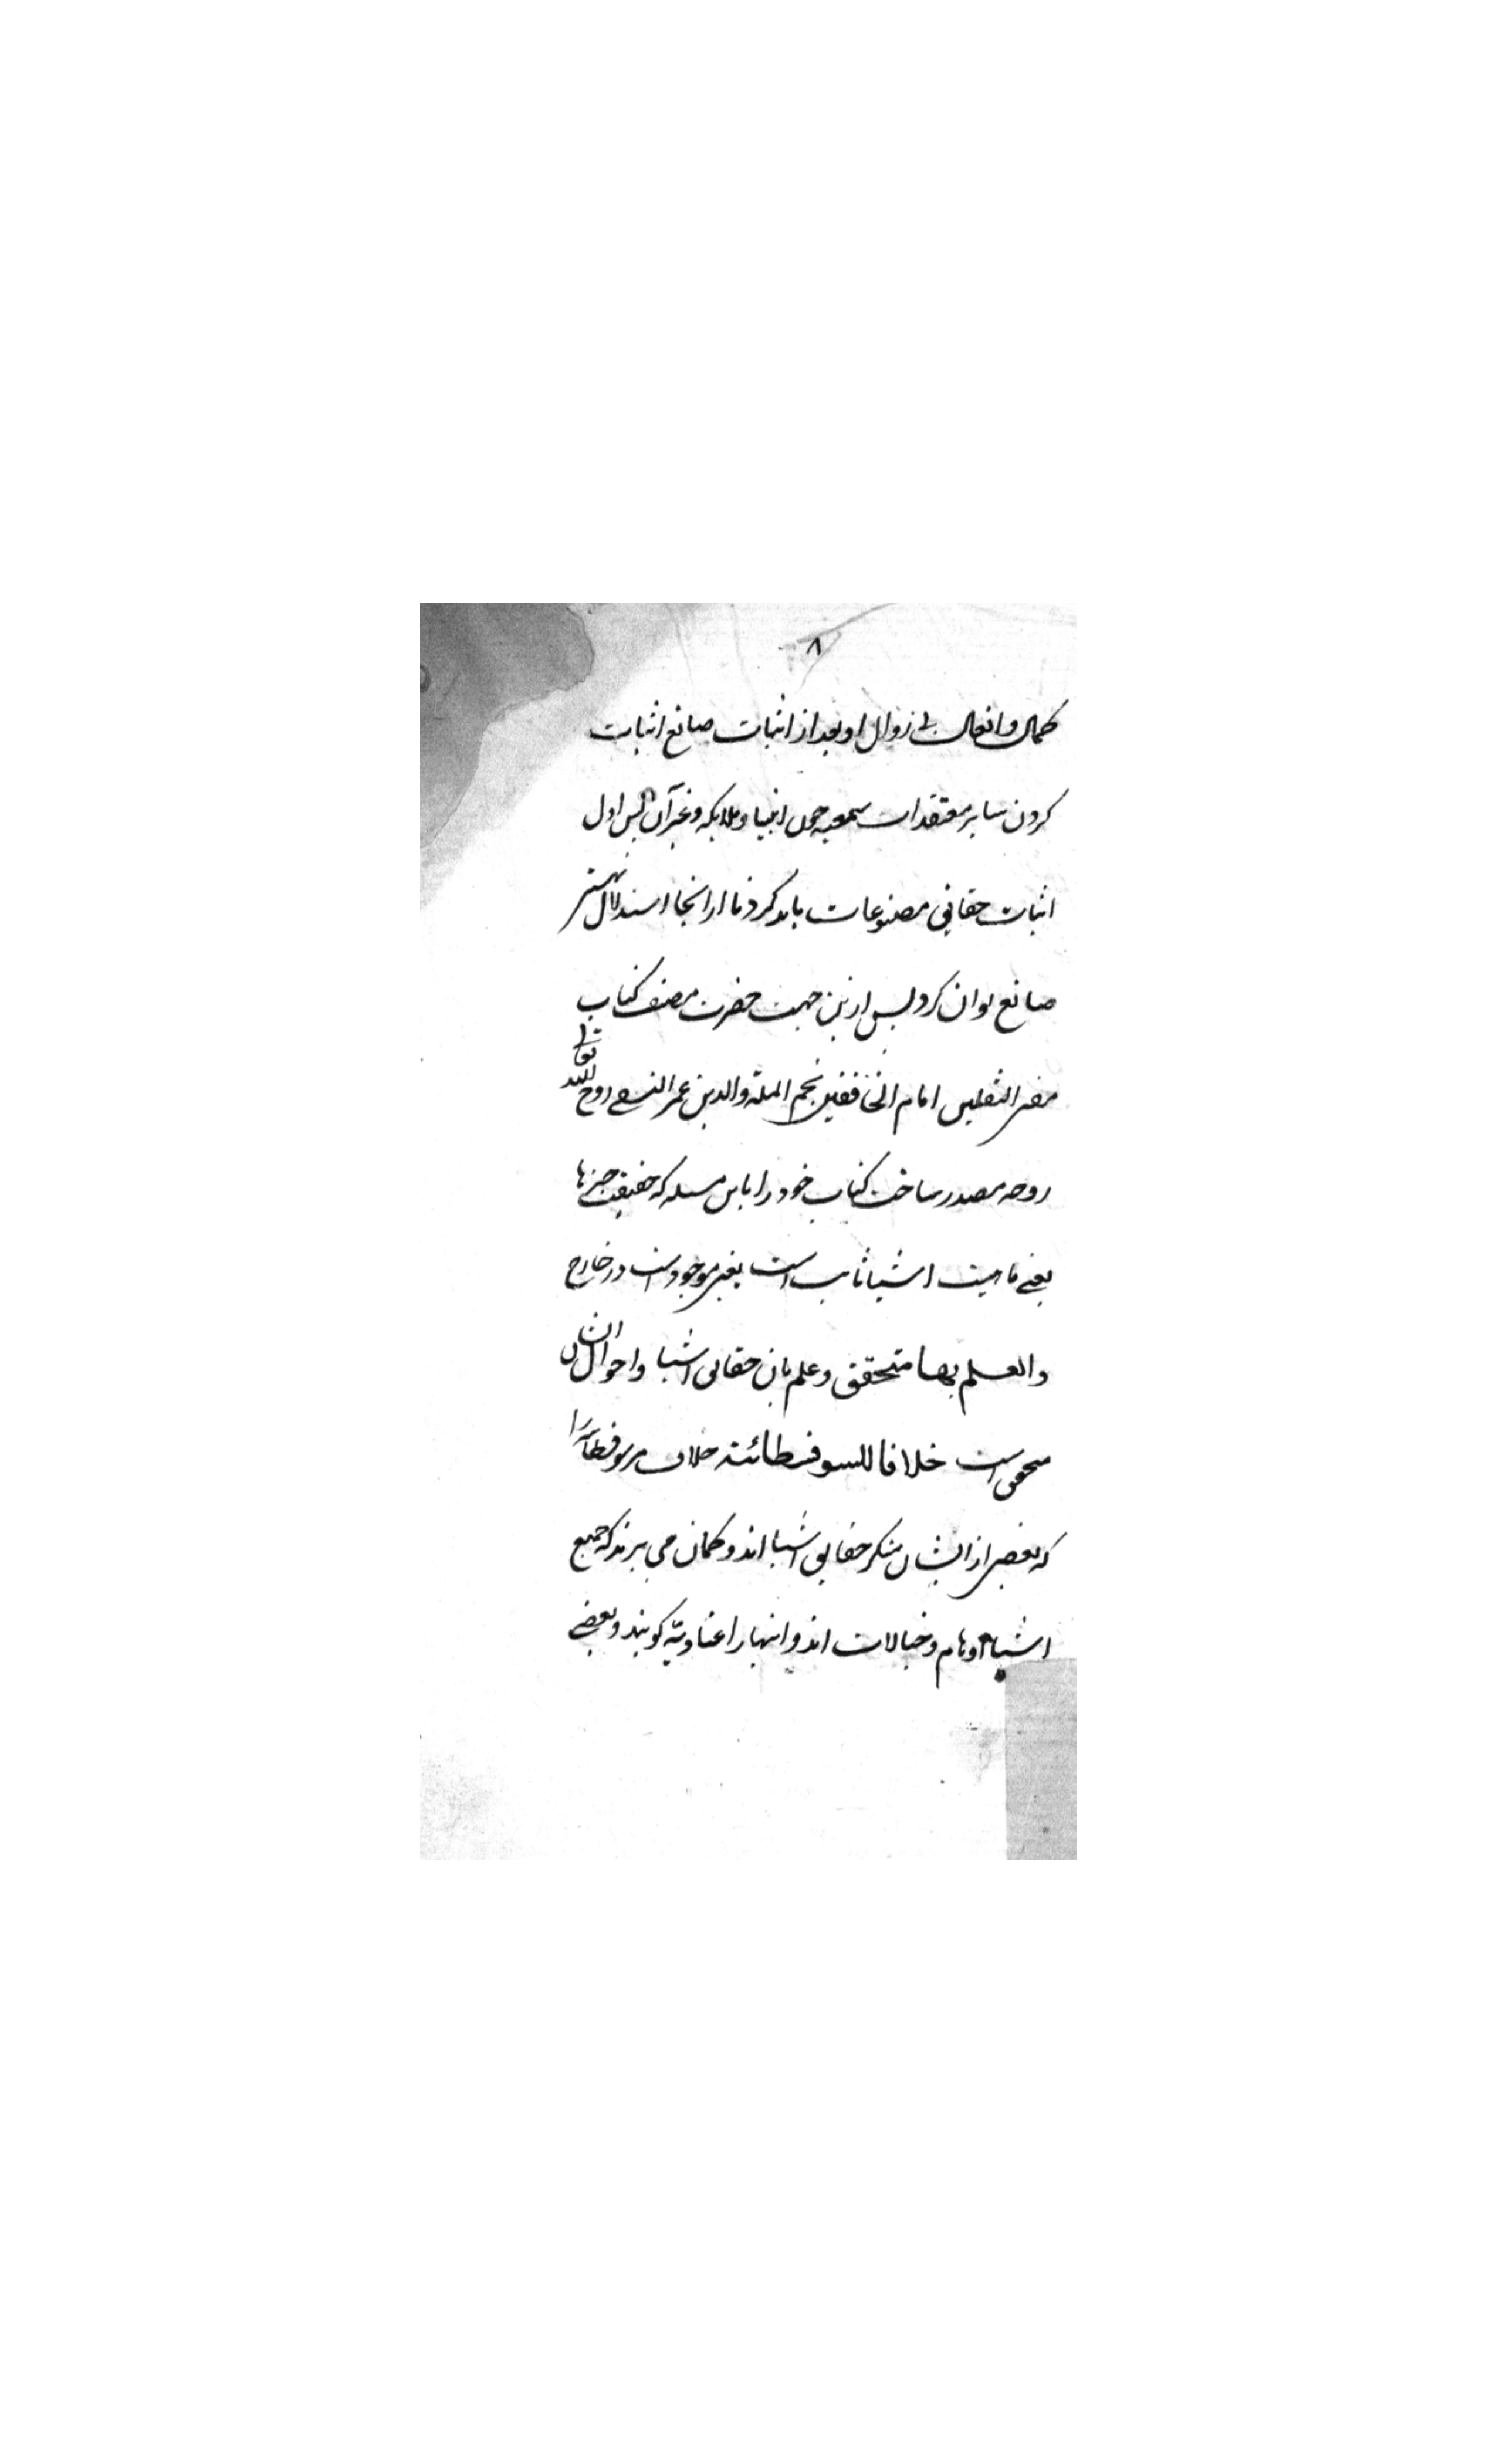 ۸
کمال و افعال بی زوال او و بعد از اثبات صانع اثبات
کردن سایر معتقدات سمعیه چون انبیا و ملایکه و غیر آن پس اول
اثبات حقایق مصنوعات باید کرد تا از انجا استدلال بهستی
صانع توان کرد پس ازین جهت حضرت مصنف کتاب
مفتی الثقلین امام الخافقین نجم الملة والدین عمر النسفی روح الله تعالی
روحه مصدر ساخت کتاب خود را باین مسله که حقیقت چیزها
یعنی ماهیت اشیا ثابت است یعنی موجود است در خارج
والعلم بها متحقق و علم بان حقایق اشیا و احوال ایشان
متحقق است خلافا للسوفسطائیة خلاف مر سوفسطائیه را
که بعضی از ایشان منکر حقایق اشیا اند و کمان می برند که جمیع
اشیاء اوهام و خیالات اند و اینها را عنادیّه کویند و بعضی